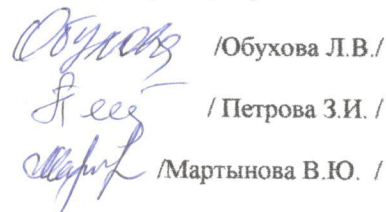 Обухова /Обухова Л.В./
/ Петрова З.И. /
/Мартынова В.Ю. /